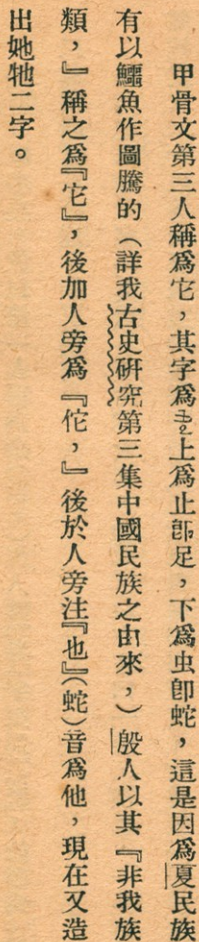 甲骨文第三人稱爲它，其字爲上爲止卽足，下爲虫卽蛇，這是因爲夏民族
有以鱷魚作圖騰的（詳我古史研究第三集中國民族之由來，）殷人以其『非我族
類，』稱之爲『它』，後加人旁爲『佗，』後於人旁注『也』（蛇）音爲他，現在又造
出她牠二字。